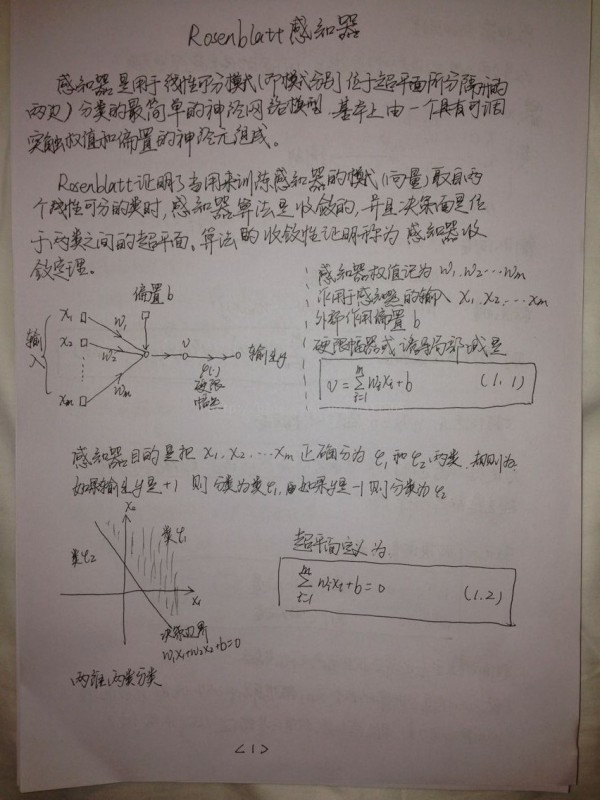 Rosenblatt感知器
感知器是用于线性可分模式(即模式分别位于超平面所分隔开的
两边)分类的最简单的神经网络模型.基本上由一个具有可调
突触权值和偏置的神经元组成。
Rosenblatt证明了当用来训练感知器的模式(向量)取自两
个线性可分的类时,感知器算法是收敛的,并且决策面是位
于两类之间的超平面。算法的收敛性证明称为感知器收
敛定理。
偏置b
x₁
w₁
输入
x₂
w₂
v
输出y
φ(·)
硬限
幅器
xm
wm
感知器权值记为 w₁.w₂…wm
作用于感知器的输入 x₁.x₂.…xm
外部作用偏置b
硬限幅器或诱导局部域是
v=∑ᵢ₌₁ᵐwᵢxᵢ+b (1.1)
感知器目的是把 x₁.x₂.…xm 正确分为 φ₁和φ₂两类.规则为:
如果输出y是+1 则分类为类φ₁,如果y是-1则分类为φ₂
x₂
类φ₁
类φ₂
x₁
决策边界
w₁x₁+w₂x₂+b=0
两维两类分类
超平面定义为
∑ᵢ₌₁ᵐwᵢxᵢ+b=0 (1.2)
<1>